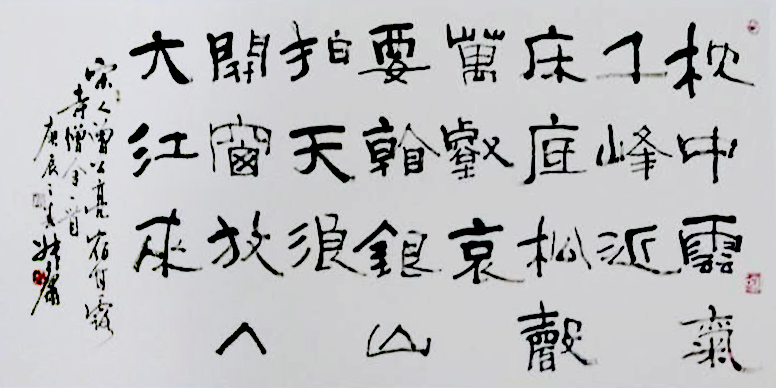 枕中雲氣
千峰近
床底松聲
萬壑哀
要看銀山
拍天浪
開窗放入
大江來
宋人曾公亮宿甘露
寺僧舍一首
庚辰之